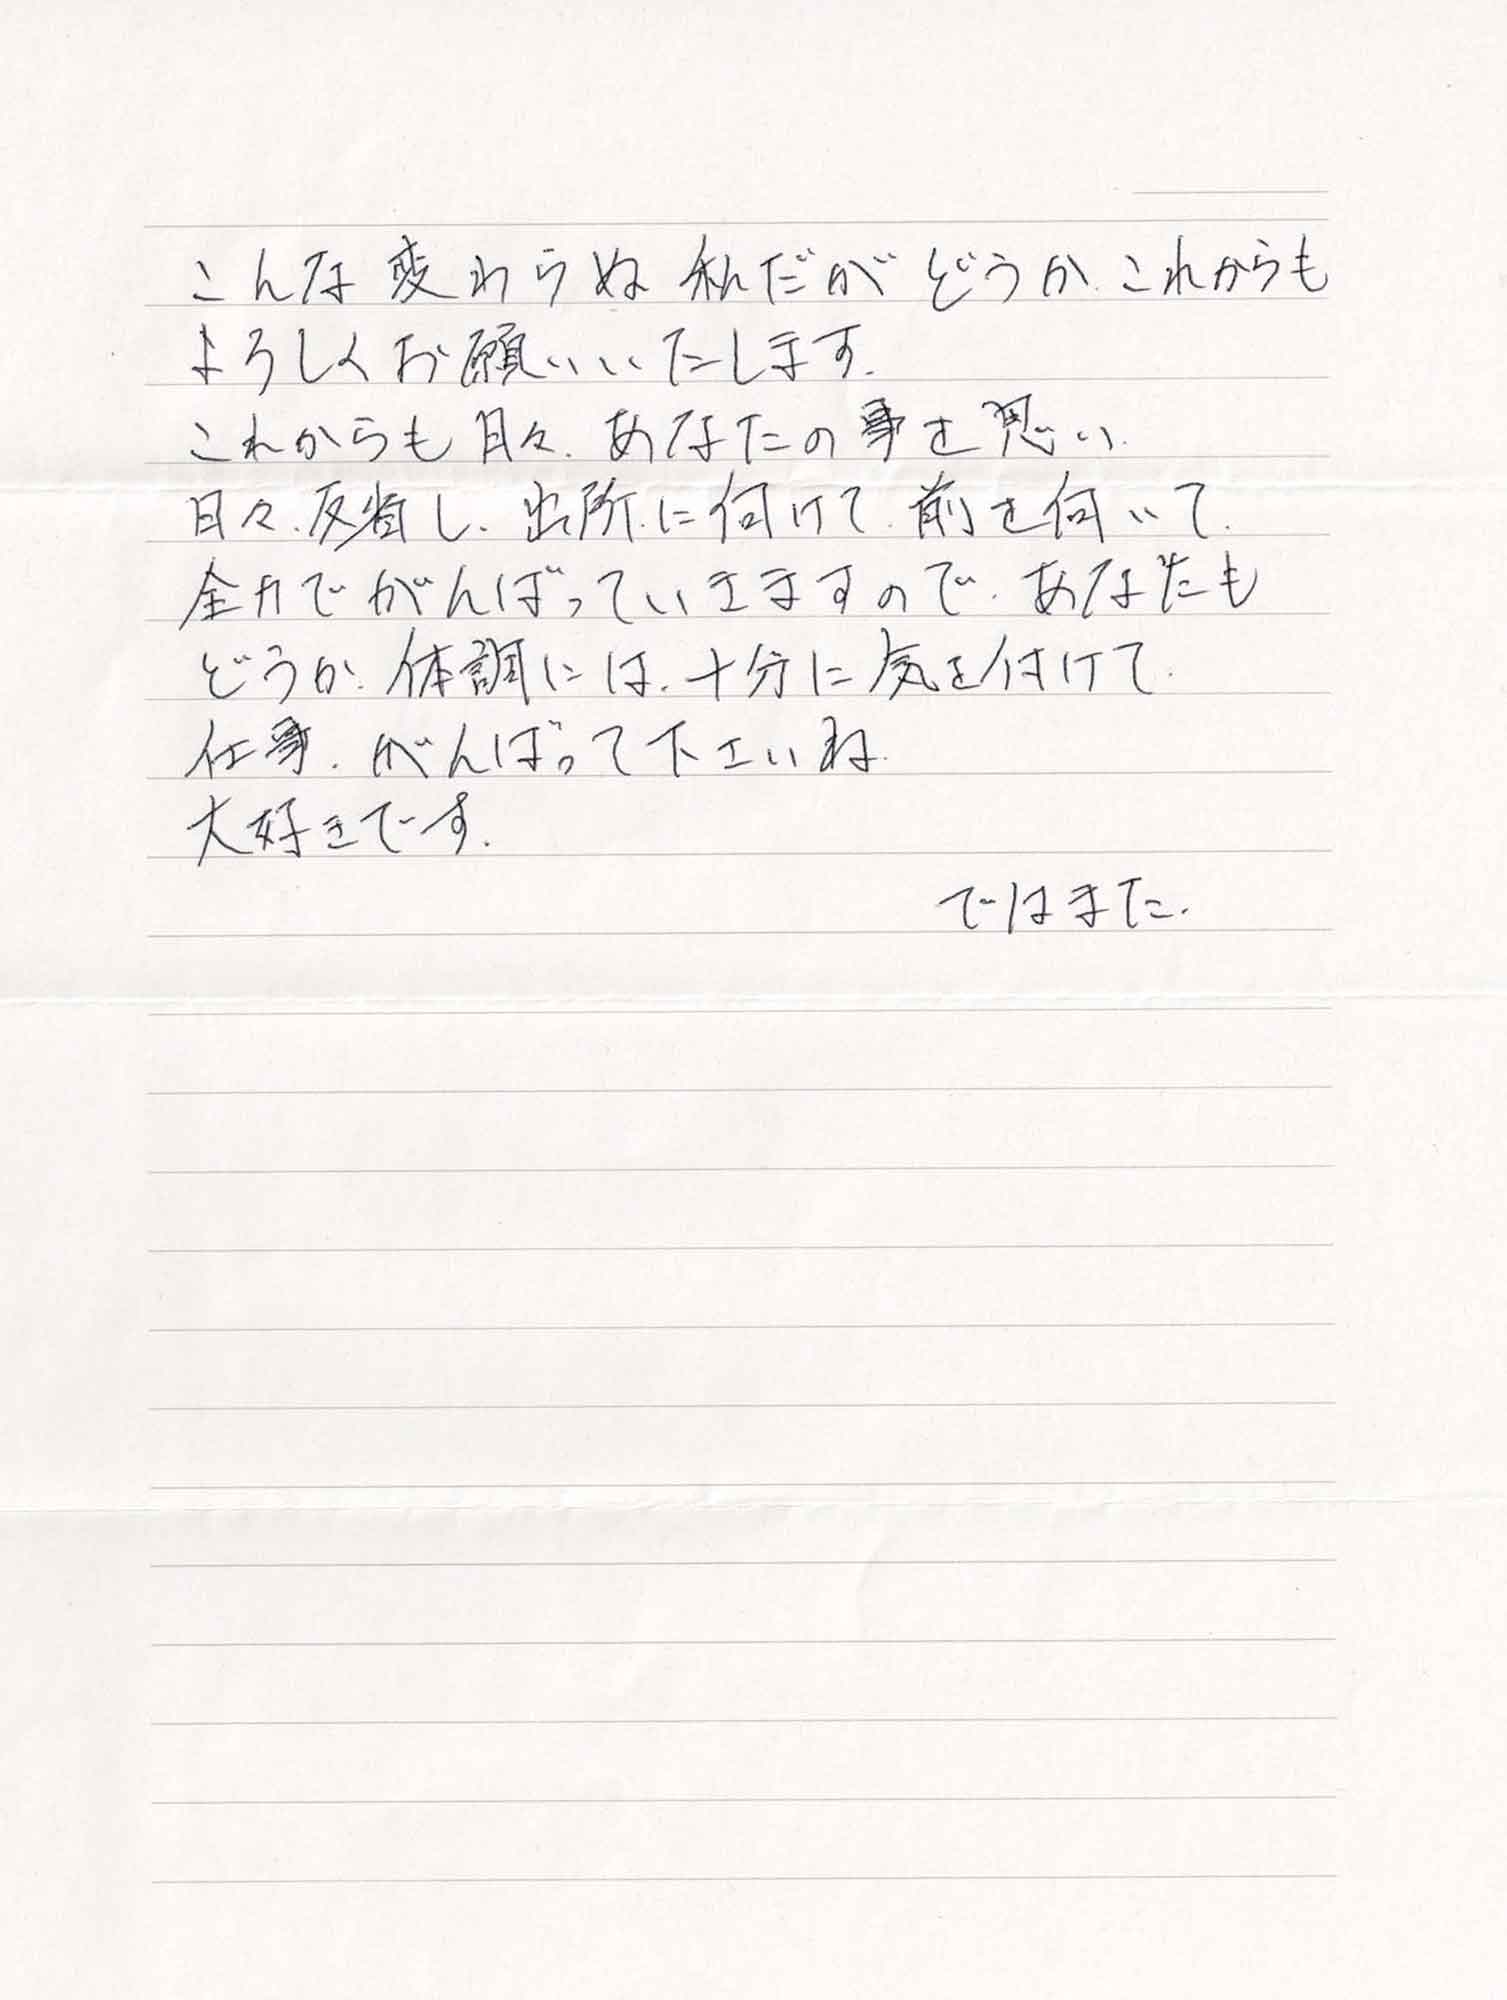 こんな変わらぬ私だがどうか、これからも
よろしくお願いいたします。
これからも日々、あなたの事を思い、
日々、反省し、出所に向けて、前を向いて、
全力でがんばっていきますので、あなたも
どうか、体調には、十分に気を付けて、
仕事、がんばって下さいね。
大好きです。
ではまた。